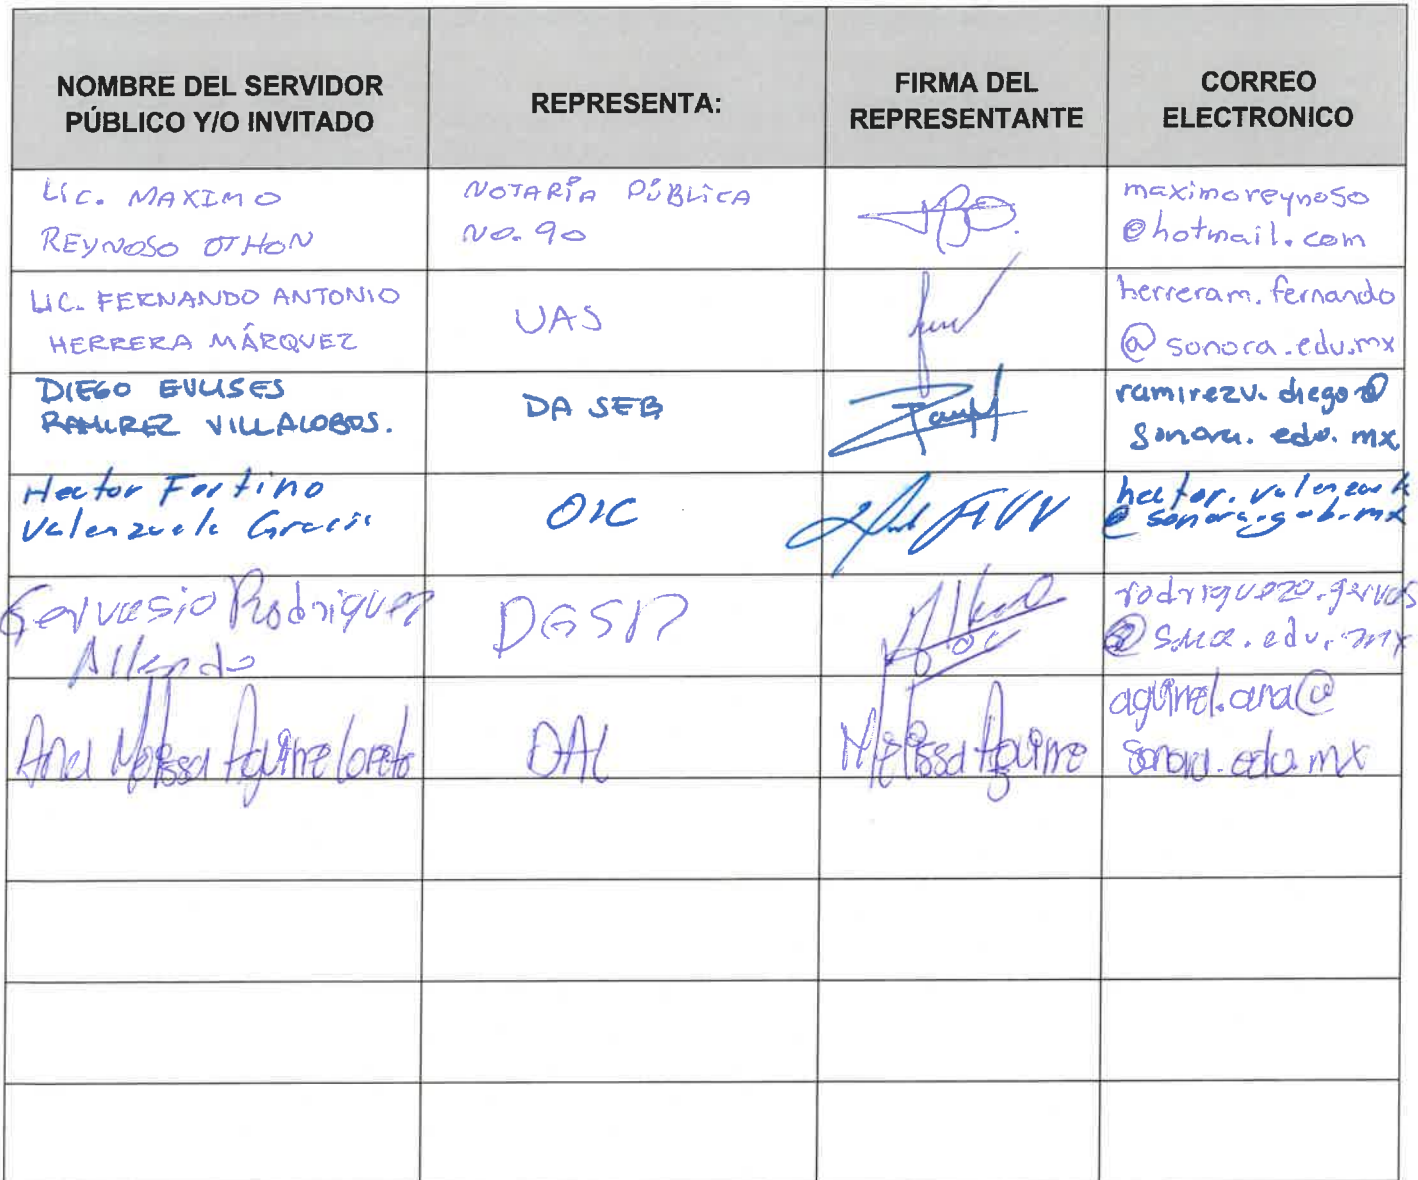 NOMBRE DEL SERVIDOR
PÚBLICO Y/O INVITADO
REPRESENTA:
FIRMA DEL
REPRESENTANTE
CORREO
ELECTRONICO
LIC. MAXIMO
REYNOSO OTHON
NOTARÍA PÚBLICA
NO. 90
maximoreynoso
@hotmail.com
LIC. FERNANDO ANTONIO
HERRERA MÁRQUEZ
UAS
herreram.fernando
@sonora.edu.mx
DIEGO EULISES
RAMIREZ VILLALOBOS.
DA SEB
ramirezv.diego@
sonora.edu.mx
Hector Fortino
Valenzuela
OIC
hector.valenzuela
@sonora.gob.mx
Gervasio Rodriguez
Allende
.edu.mx
Ana Melissa Aguirre Loreto
DAL
Melissa Aguirre
aguirrel.ana@
sonora.edu.mx